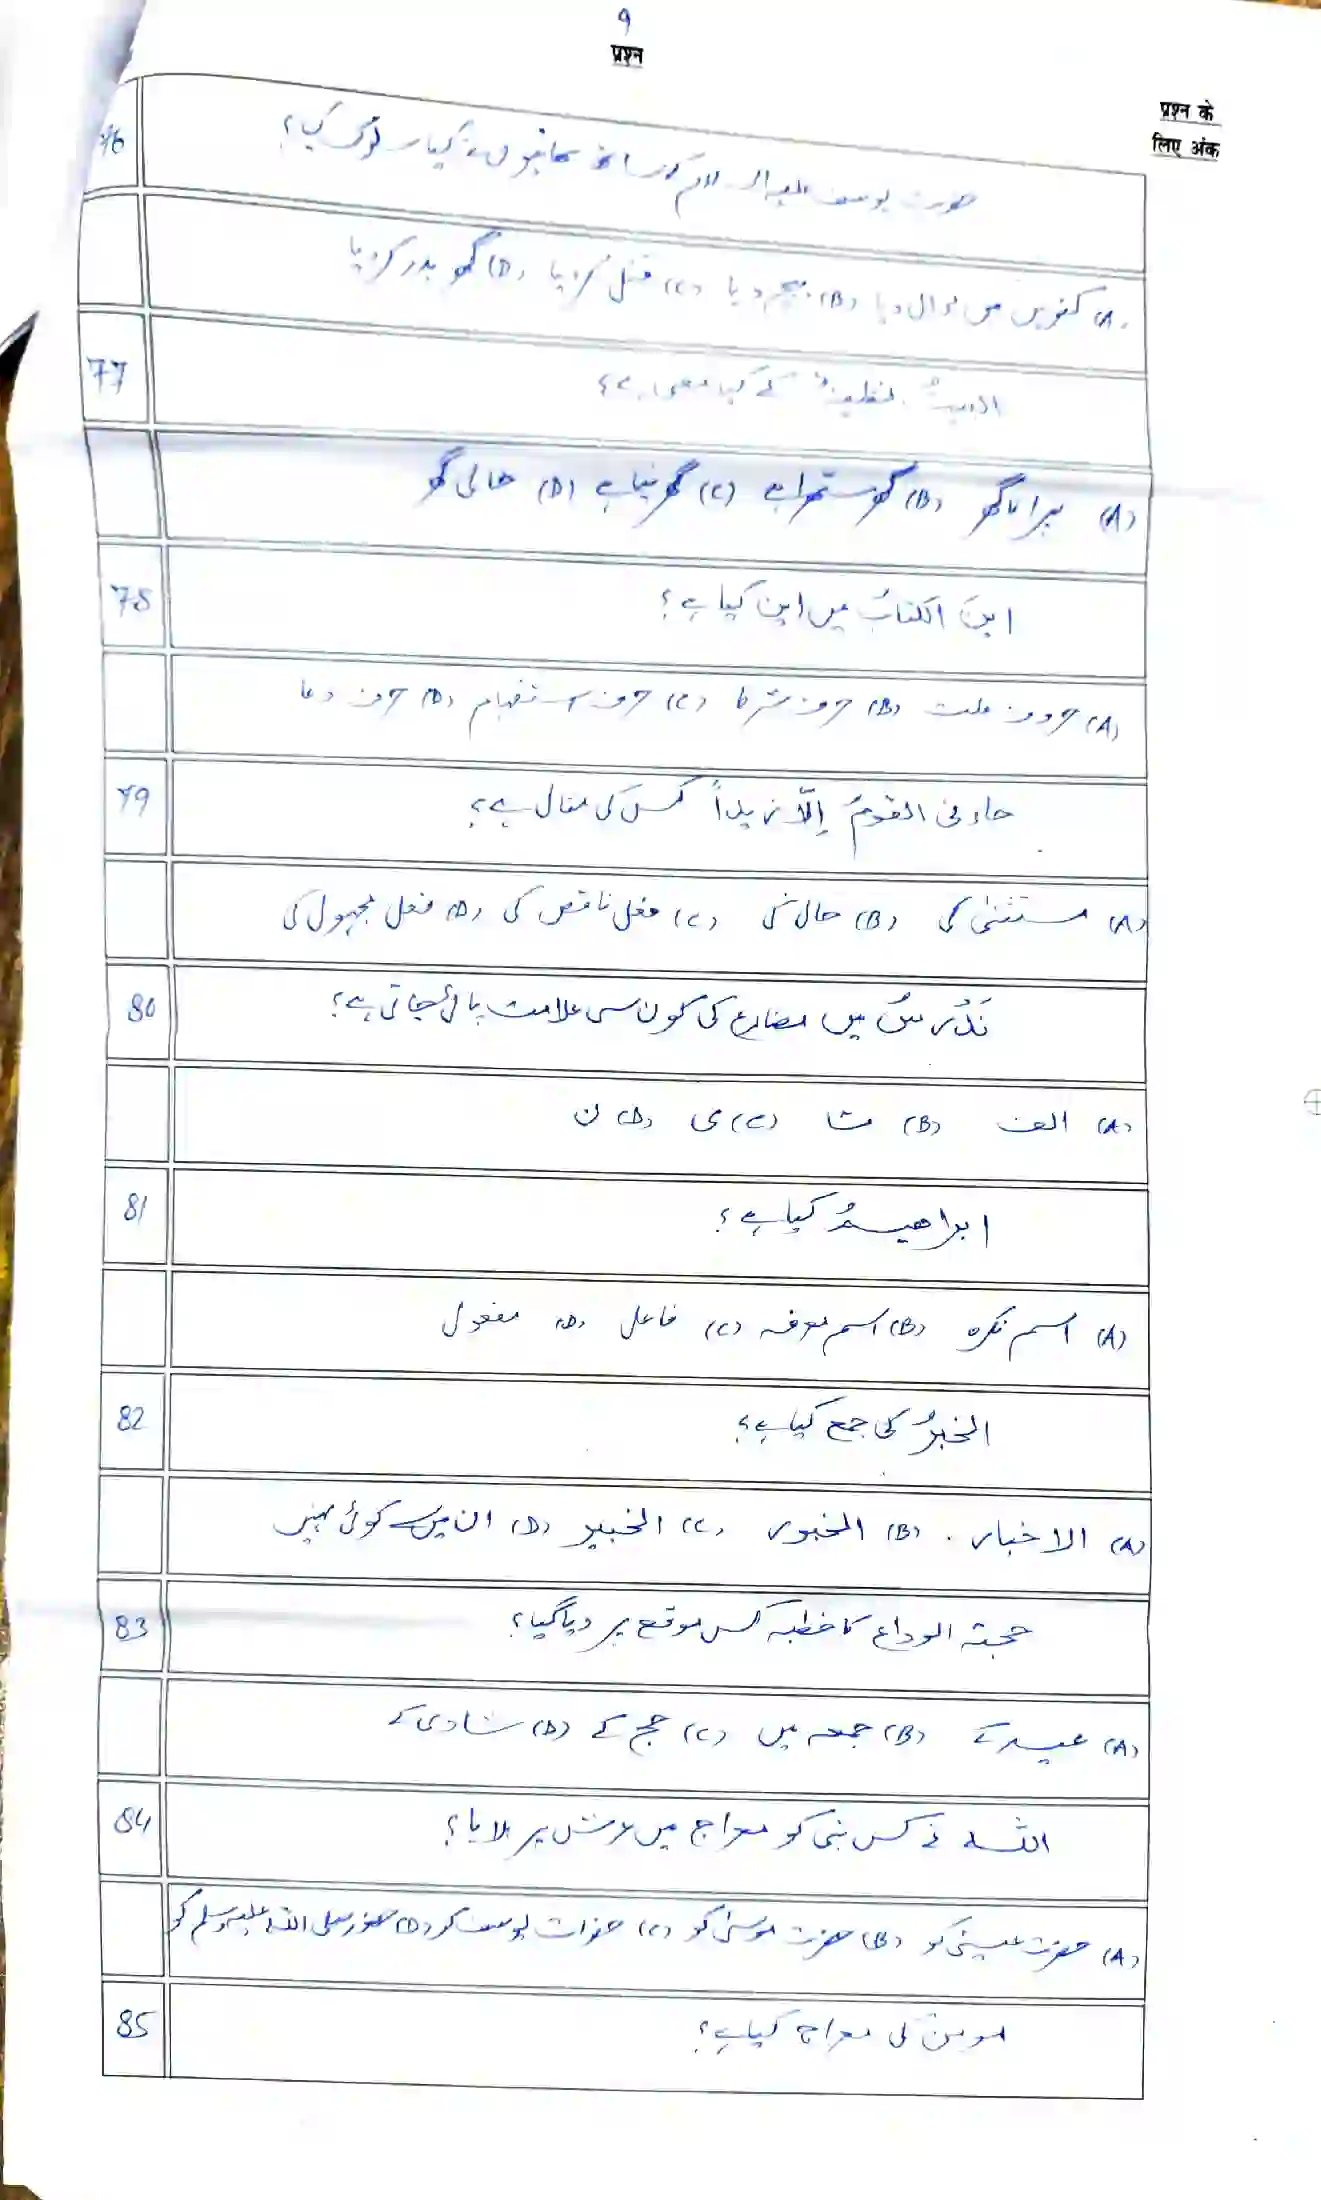 9
प्रश्न
प्रश्न के
लिए अंक
76
حضرت یوسف علیہ السلام کے ساتھ بھائیوں نے کیا سلوک کیا؟
(A) کنویں میں ڈال دیا (B) بیچ دیا (C) قتل کر دیا (D) گھر بدر کر دیا
77
البیتُ نظیفٌ کے کیا معنی ہے؟
(A) پرانا گھر (B) گھر ستھرا ہے (C) گھر نیا ہے (D) خالی گھر
78
این الکتابُ میں این کیا ہے؟
(A) حروف علت (B) حرف شرط (C) حرف استفہام (D) حرف دعا
79
جاءنی القومُ إلّا زیداً کس کی مثال ہے؟
(A) مستثنیٰ کی (B) حال کی (C) فعل ناقص کی (D) فعل مجہول کی
80
نَدْرسُ میں مضارع کی کون سی علامت پائی جاتی ہے؟
(A) الف (B) تا (C) ی (D) ن
81
ابراھیمُ کیا ہے؟
(A) اسم نکرہ (B) اسم معرفہ (C) فاعل (D) مفعول
82
الخبرُ کی جمع کیا ہے؟
(A) الاخبار (B) الخبور (C) الخبیر (D) ان میں سے کوئی نہیں
83
حجتہ الوداع کا خطبہ کس موقع پر دیا گیا؟
(A) عید کے (B) جمعہ میں (C) حج کے (D) شادی کے
84
اللہ نے کس نبی کو معراج میں عرش پر بلایا؟
(A) حضرت عیسیٰ کو (B) حضرت موسیٰ کو (C) حضرات یوسف کو (D) حضور صلی اللہ علیہ وسلم کو
85
مومن کی معراج کیا ہے؟